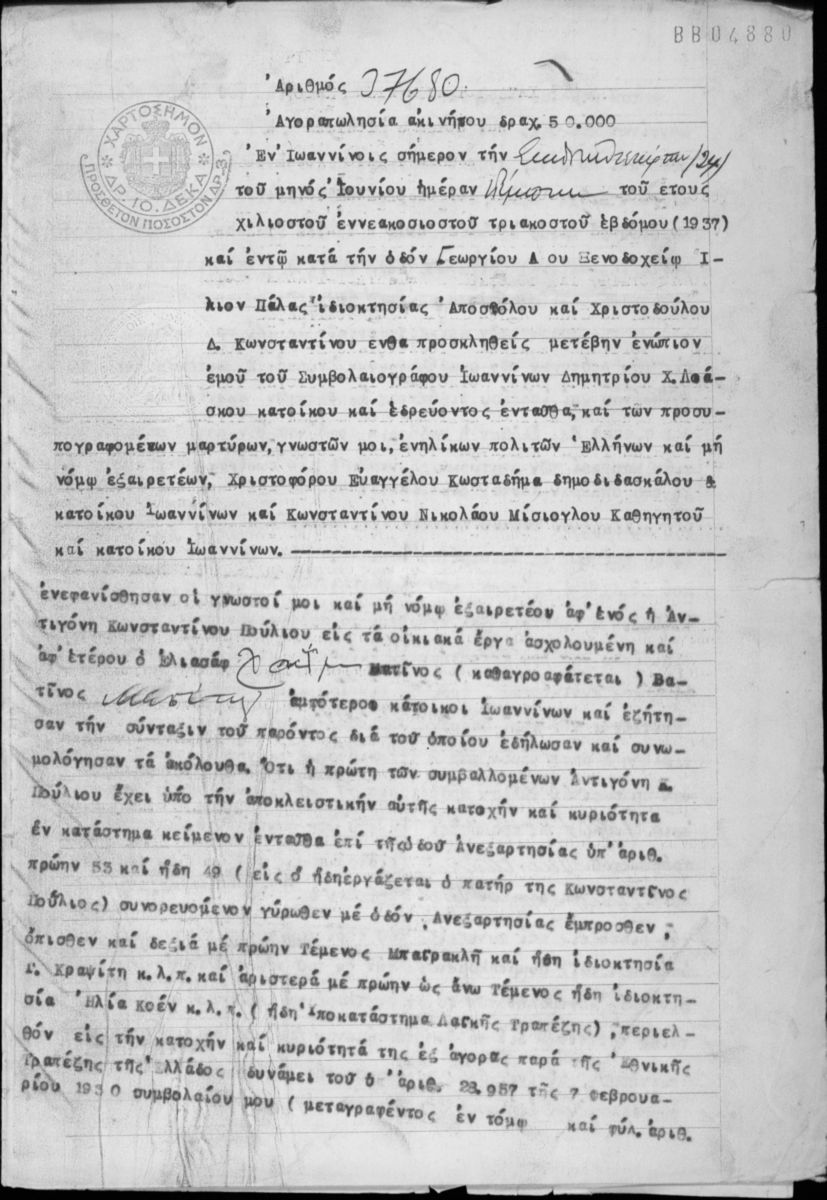 BB04880
Ἀριθμός 37680.
Ἀγοραπωλησία ακινήτου δραχ. 50.000
ΧΑΡΤΟΣΗΜΟΝ
ΔΡ. 10. ΔΕΚΑ
ΠΡΟΣΘΕΤΟΝ ΠΟΣΟΣΤΟΝ ΔΡ-3
Ἐν Ἰωαννίνοις σήμερον τήν /24/
τοῦ μηνός Ἰουνίου ἡμέραν Πέμπτην τοῦ ετους
χιλιοστοῦ ἐννεακοσιοστοῦ τριακοστοῦ ἑβδόμου (1937)
καί ἐντῷ κατά τήν ὁδόν Γεωργίου Α ου Ξενοδοχείῳ Ι-
λιον Πάλας ἰδιοκτησίας Ἀποστόλου καί Χριστοδούλου
Δ. Κωνσταντίνου ενθα προσκληθείς μετέβην ἐνώπιον
ἐμοῦ τοῦ Συμβολαιογράφου Ἰωαννίνων Δημητρίου Χ.
σκου κατοίκου καί ἑδρεύοντος ἐνταῦθα, καί τῶν προσυ-
πογραφομένων μαρτύρων, γνωστῶν μοι, ἐνηλίκων πολιτῶν Ἑλλήνων καί μή
νόμῳ ἐξαιρετέων, Χριστοφόρου Εὐαγγέλου Κωσταδήμα δημοδιδασκάλου &
κατοίκου Ἰωαννίνων καί Κωνσταντίνου Νικολάου Μίσιογλου Καθηγητοῦ
καί κατοίκου Ἰωαννίνων.
ἐνεφανίσθησαν οἱ γνωστοί μοι καί μή νόμῳ ἐξαιρετέοι ἀφ' ἑνός ἡ Ἀν-
τιγόνη Κωνσταντίνου Πούλιου εἰς τά οἰκιακά ἔργα ἀσχολουμένη καί
ἀφ' ἑτέρου ὁ Ἐλιασάφ Χαΐμ Ματῖνος ( καθαγροαφάτεται ) Βα-
τῖνος ἀμφότεροι κάτοικοι Ἰωαννίνων καί ἐζήτη-
σαν τήν σύνταξιν τοῦ παρόντος διά τοῦ ὁποίου ἐδήλωσαν καί συνω-
μολόγησαν τά ἀκόλουθα. Ὅτι ἡ πρώτη τῶν συμβαλλομένων Ἀντιγόνη Κ.
Πούλιου ἔχει ὑπό τήν ἀποκλειστικήν αὐτῆς κατοχήν καί κυριότητα
ἐν κατάστημα κείμενον ἐνταῦθα ἐπί τῆς ὁδοῦ Ἀνεξαρτησίας ὑπ' ἀριθ.
πρώην 53 καί ἤδη 49 ( εἰς ὅ ἤδη ἐργάζεται ὁ πατήρ της Κωνσταντῖνος
Πούλιος) συνορευόμενον γύρωθεν μέ ὁδόν, Ἀνεξαρτησίας ἔμπροσθεν,
ὄπισθεν καί δεξιά μέ πρώην Τέμενος Μπαϊρακλῆ καί ἤδη ἰδιοκτησία
Γ. Κραψίτη κ.λ.π. καί ἀριστερά μέ πρώην ὡς ἄνω Τέμενος ἤδη ἰδιοκτη-
σία Ἠλία Κοέν κ.λ.π. ( ἤδη Ὑποκατάστημα Λαϊκῆς Τραπέζης), περιελ-
θόν εἰς τήν κατοχήν καί κυριότητά της ἐξ ἀγορας παρά τῆς Ἐθνικῆς
Τραπέζης τῆς Ἑλλάδος δυνάμει τοῦ ὑ ἀριθ. 28.957 τῆς 7 Φεβρουα-
ρίου 1930 συμβολαίου μου ( μεταγραφέντος ἐν τόμῳ καί φύλ. ἀριθ.